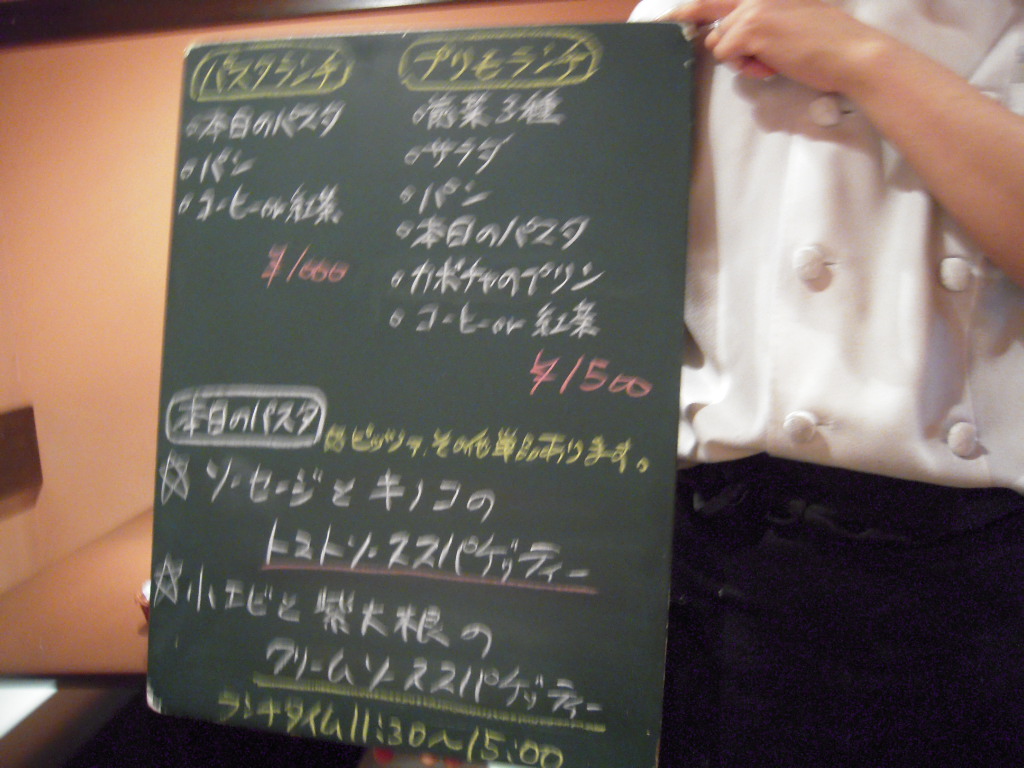 パスタランチ
○本日のパスタ
○パン
○コーヒーor紅茶
¥1000
プリモランチ
○前菜3種
○サラダ
○パン
○本日のパスタ
○カボチャのプリン
○コーヒーor紅茶
¥1500
本日のパスタ
ピッツァ、その他単品あります。
☆ソーセージとキノコの
トマトソーススパゲッティー
☆小エビと紫大根の
クリームソーススパゲッティー
ランチタイム11:30〜15:00